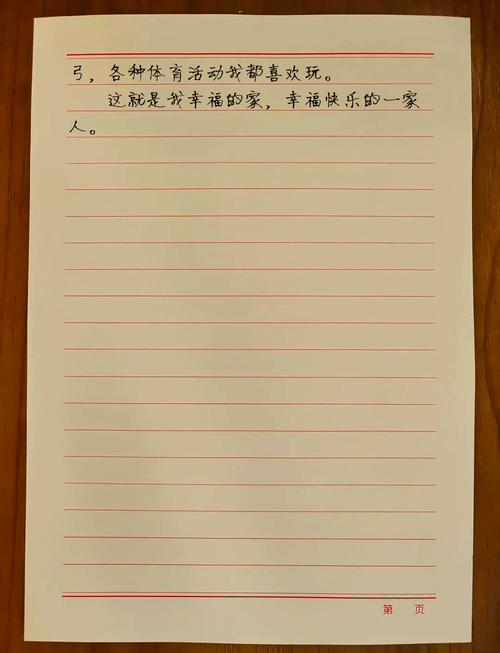 弓，各种体育活动我都喜欢玩。
这就是我幸福的家，幸福快乐的一家
人。
第 页